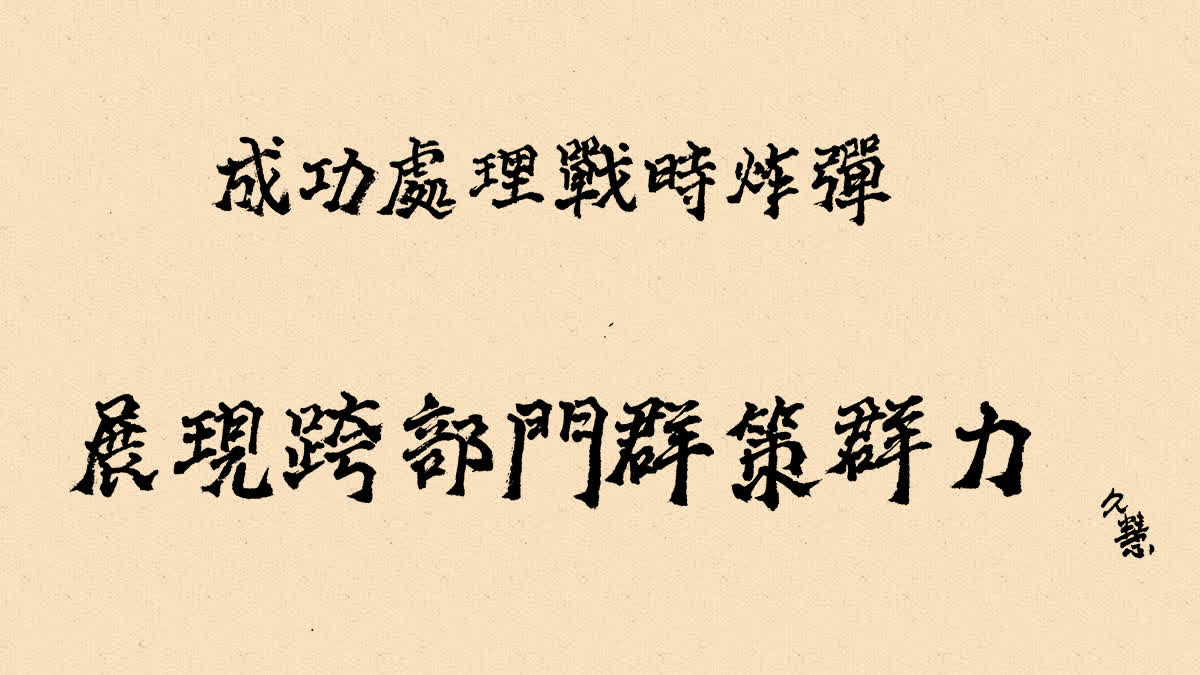 成功處理戰時炸彈
展現跨部門群策群力
久慧